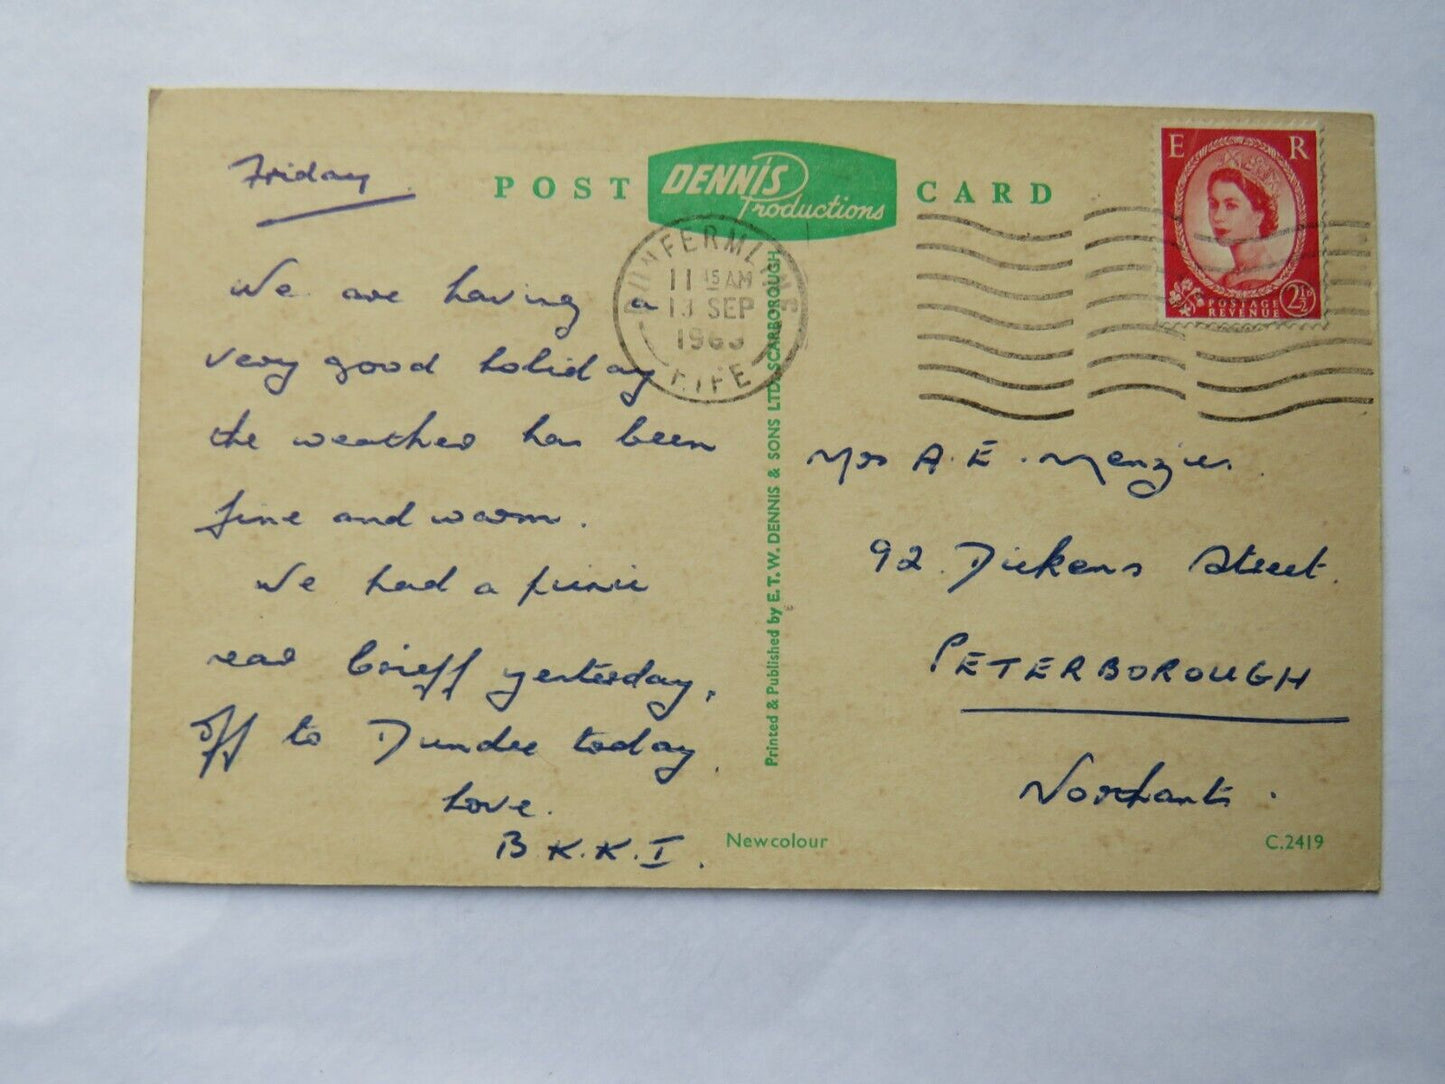 Friday.
We are having a
very good holiday
the weather has been
fine and warm.
We had a picnic
near Crieff yesterday,
off to Dundee today.
Love.
B K.K.I.
POST CARD
DENNIS
Productions
DUNFERMLINE
11 15 AM
13 SEP
1963
FIFE
Printed & Published by E.T.W. DENNIS & SONS LTD. SCARBOROUGH
E R
POSTAGE
REVENUE
2½D
Mrs A. E. Menzies.
92 Dickens Street.
PETERBOROUGH
Northants.
Newcolour
C.2419